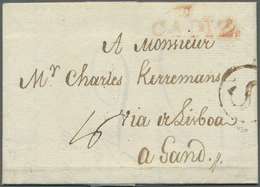 CADIZ
A Monsieur
Mr Charles Kerremans
16
via et Lisboa
a Gand.